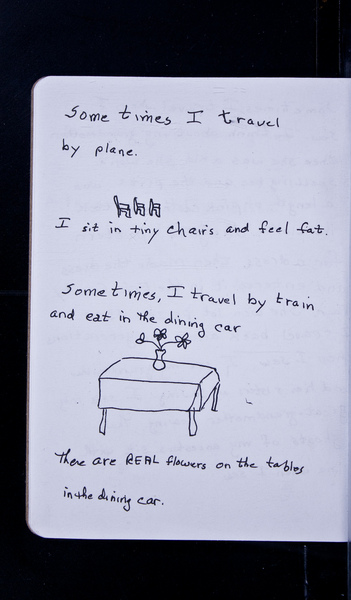 Some times I travel
by plane.
I sit in tiny chairs and feel fat.
Sometimes, I travel by train
and eat in the dining car
There are REAL flowers on the tables
in the dining car.